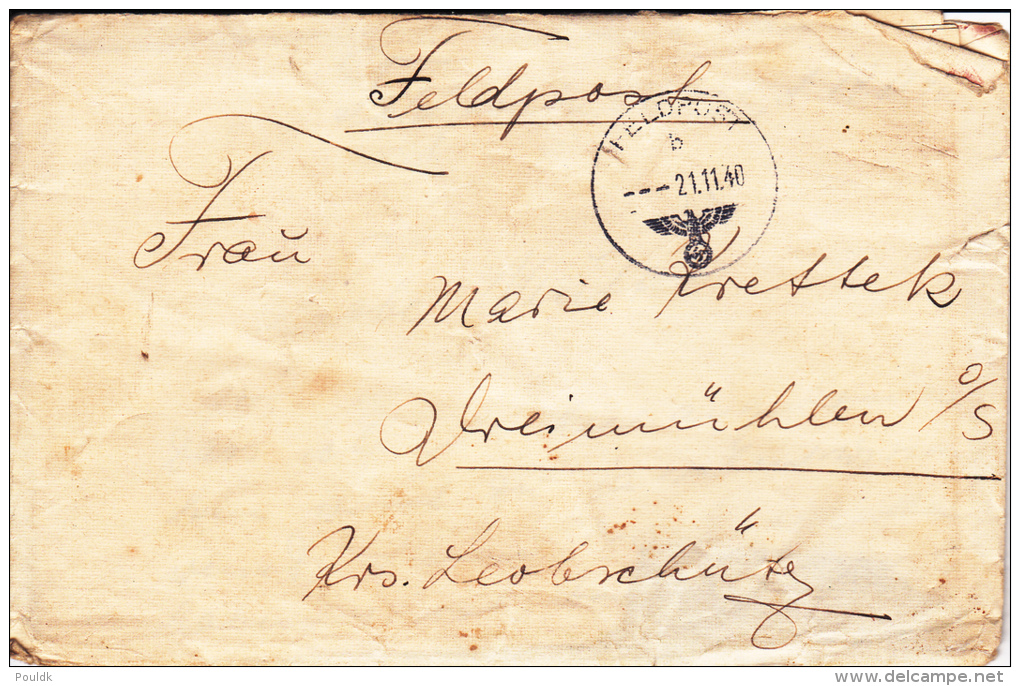 Feldpost
FELDPOST
b
---21.11.40
Frau
Marie Krettek
Dreimühlen O/S
Krs. Leobschütz
PoulDK
delcampe.net